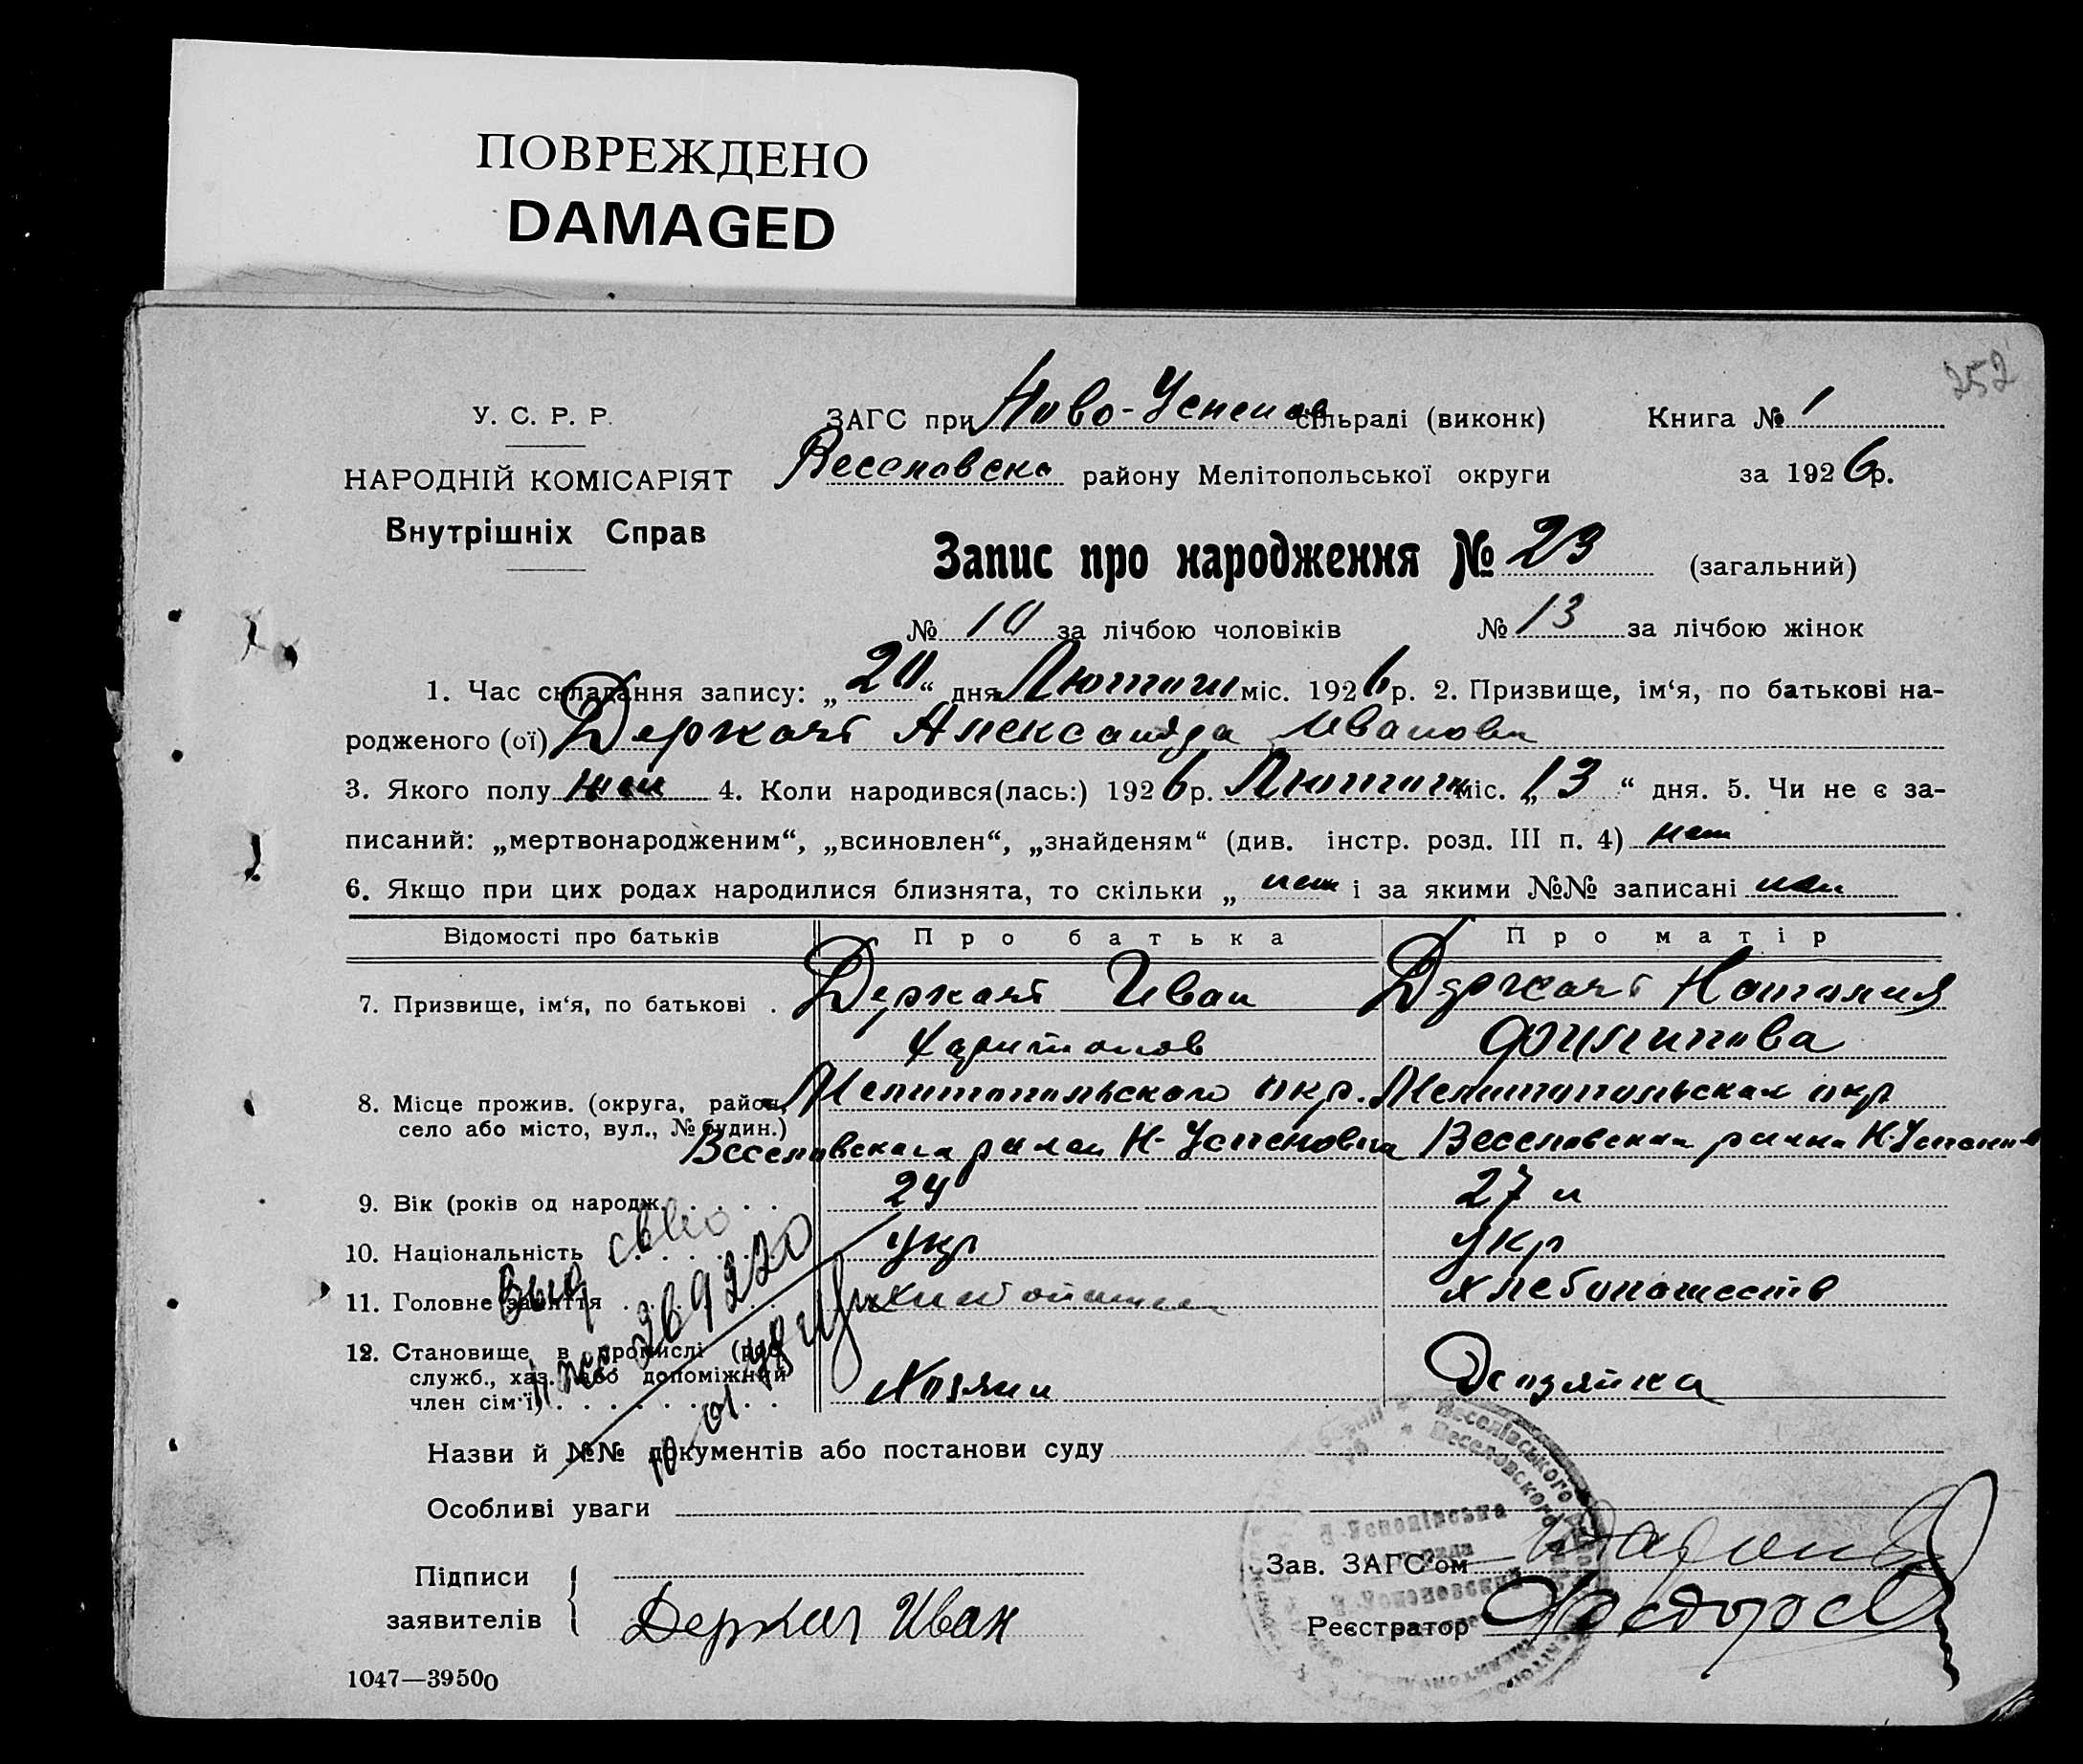 ПОВРЕЖДЕНО
DAMAGED
252
У. С. Р. Р.
НАРОДНІЙ КОМІСАРІЯТ
Внутрішніх Справ
ЗАГС при Ново-Успенов сільраді (виконк) Книга № 1
Веселовско району Мелітопольської округи за 1926р.
Запис про народження № 23 (загальний)
№ 10 за лічбою чоловіків № 13 за лічбою жінок
1. Час складання запису: „20“ дня міс. 1926р. 2. Призвище, ім‘я, по батькові на-
родженого (ої) Деркачь Александра Иванова
3. Якого полу жен 4. Коли народився(лась:) 1926р. міс. „13“ дня. 5. Чи не є за-
писаний: „мертвонародженим“, „всиновлен“, „знайденям“ (див. інстр. розд. III п. 4) нет
6. Якщо при цих родах народилися близнята, то скільки „ нет і за якими №№ записані нет
Відомості про батьків Про батька Про матір
7. Призвище, ім‘я, по батькові . Деркачь Иван Деркачь Наталия
Харитонов Филипова
8. Місце прожив. (округа, район, Мелитопольского окр. Мелитопольская окр
село або місто, вул., № будин.) Веселовского Н-Успеновка Веселовская Н-Успенов
9. Вік (років од народж. . . . . 24 27 л
10. Національність . . . . . . укр укр
11. Головне заняття . . . . . хлебопашеств
12. Становище в промислі (роб.,
служб., хаз. або допоміжний
член сім‘ї) . . . . . . . . . Хозяин Хозяйка
Выд св-во
269220
Назви й №№ документів або постанови суду
Особливі уваги
Підписи
заявителів
Деркач Иван
Зав. ЗАГС‘ом
Реєстратор
Веселівського
Веселовского
1047—39500